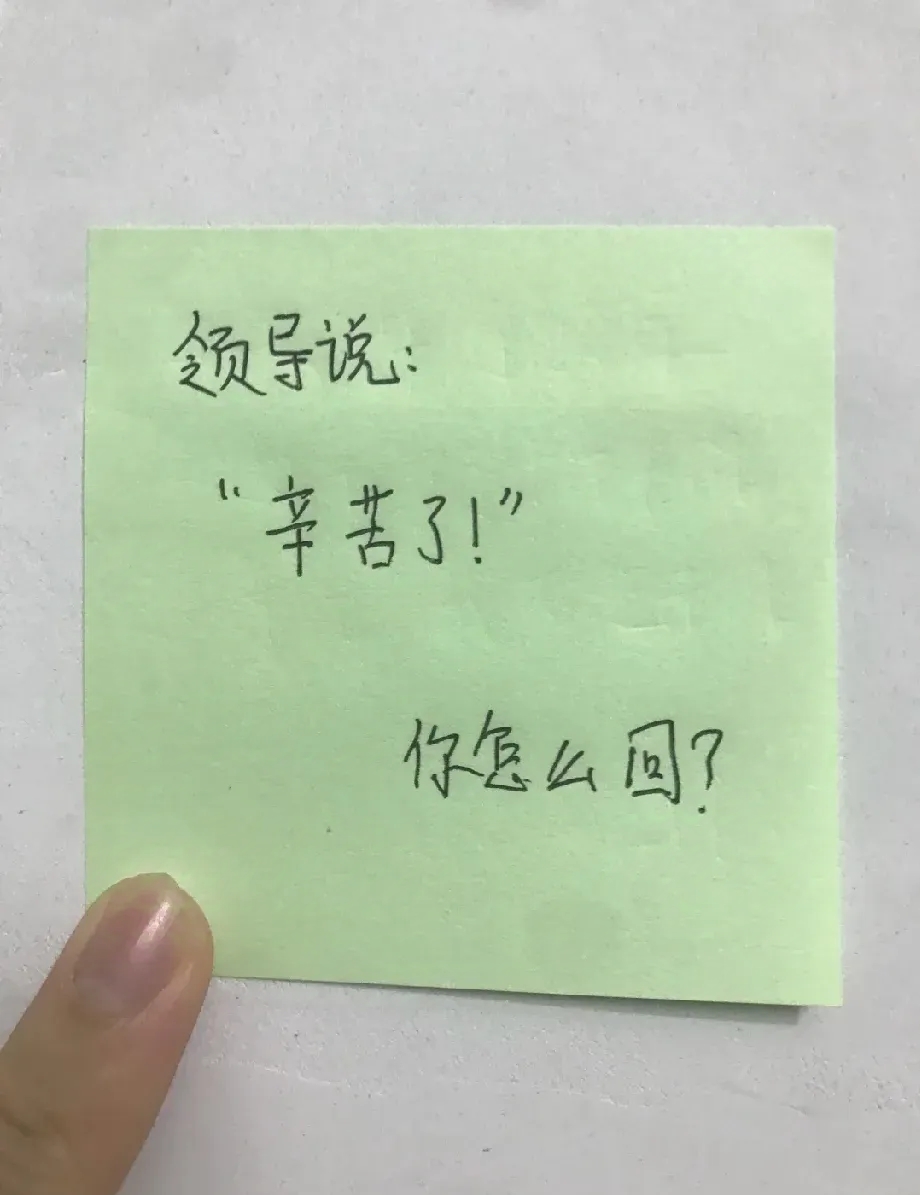 领导说:
“辛苦了!”
你怎么回?